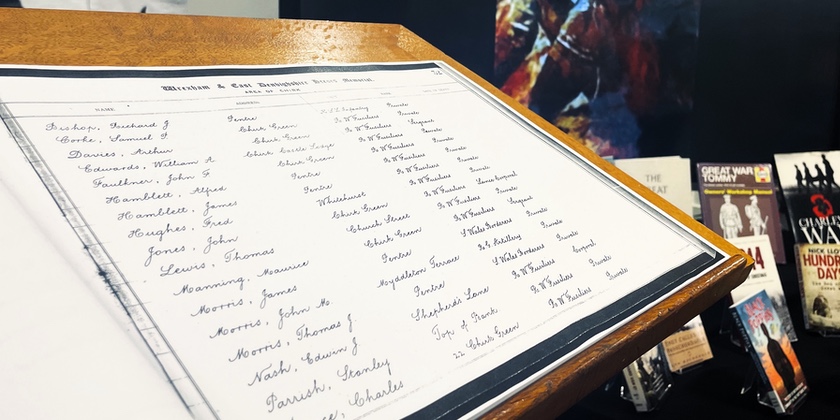 Wrexham & East Denbighshire Memorial
AREA OF CHIRK
NAME
Bishop, Richard J Pentre Infantry Private
Corke, Samuel P. Chirk Green R. W. Fusiliers Private
Davies, Arthur Chirk Green R. W. Fusiliers Sergeant
Edwards, William A Chirk Castle Lodge R. W. Fusiliers Private
Faulkner, John F Chirk Green R. W. Fusiliers Private
Hamblett, Alfred Pentre R. W. Fusiliers Private
Hamblett, James Pentre R. W. Fusiliers Private
Hughes, Fred Whitehurst R. W. Fusiliers Private
Jones, John Chirk Green R. W. Fusiliers Lance Corporal
Lewis, Thomas Church Street R. W. Fusiliers Sergeant
Manning, Maurice Chirk Green S. Wales Borderers Private
Morris, James Pentre R. G. Artillery Private
Morris, John M. Myddleton Terrace S. Wales Borderers Private
Morris, Thomas J. Pentre R. W. Fusiliers Corporal
Nash, Edwin J Shepherds Lane R. W. Fusiliers Private
Parrish, Stanley Top of Bank R. W. Fusiliers Private
Charles 22 Chirk Green
THE
GREAT WAR
TOMMY
Owners' Workshop Manual
Haynes
CHARLE
WA
NICK LLO
HUNDR
DAY
14